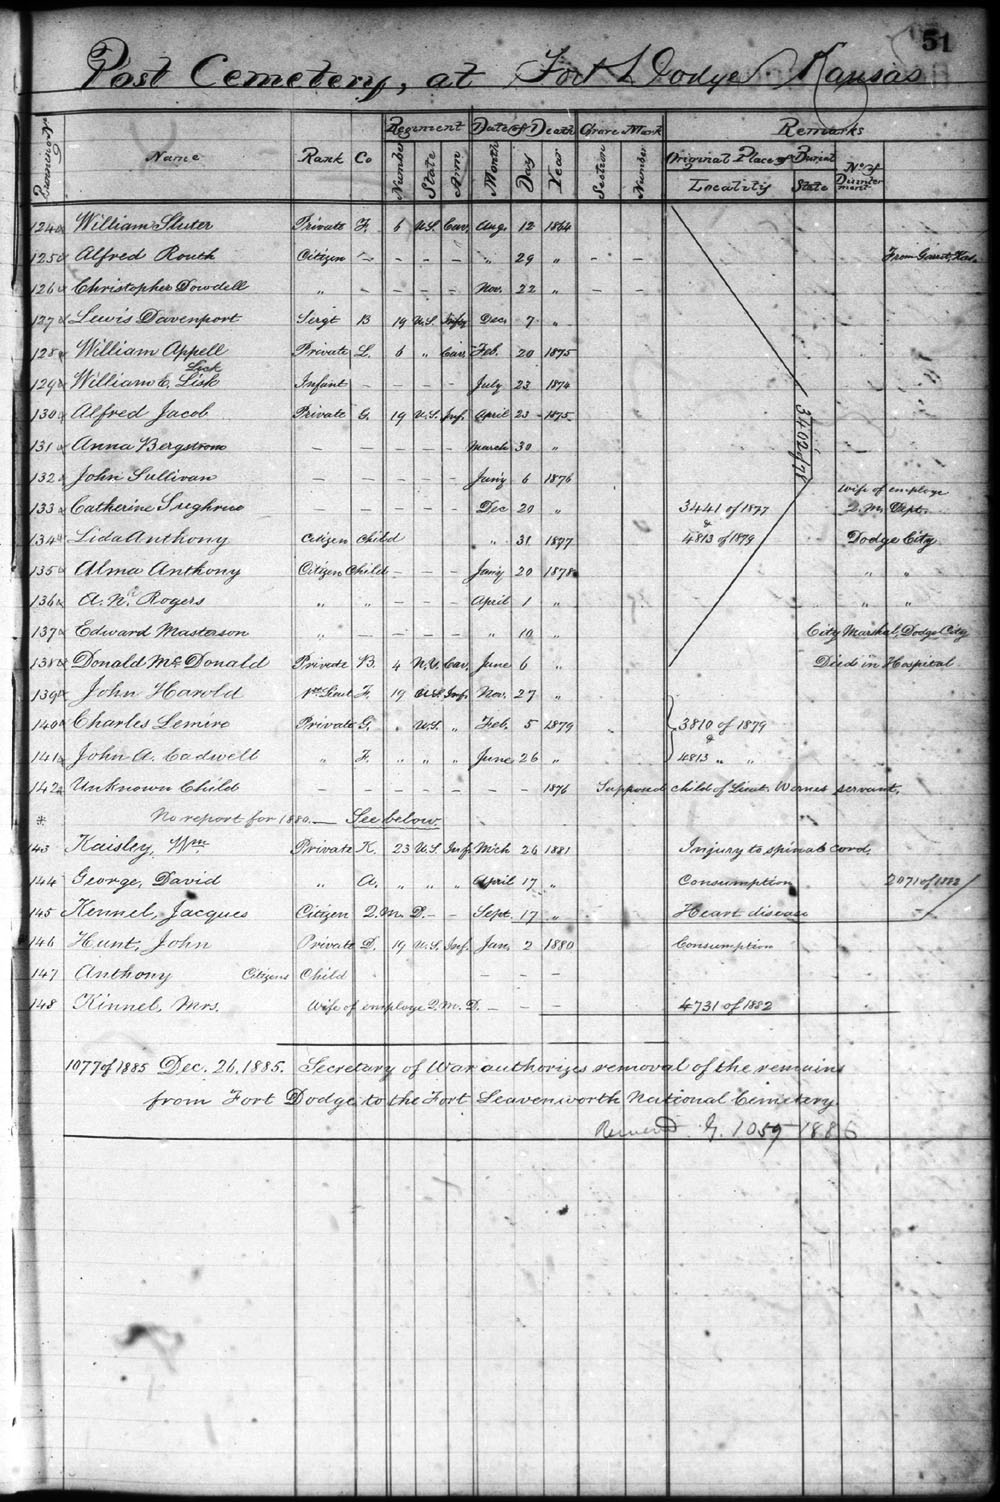 51
Post Cemetery, at Fort Dodge Kansas
Regiment Date of Death Grave Mark Remarks
Original Place of Burial No. of Disinterment
Name Rank Co Number State Arm Month Day Year Section Number Locality State
124 William Sluter Private F. 6 U.S. Cav. Aug. 12 1864
125 Alfred Routh Citizen – – – – " 29 " – – From
126 Christopher Dowdell " – – – – Nov. 22 " – –
127 Lewis Davenport Sergt B 19 U.S. Infy Dec. 7 "
128 William Appell Private L. 6 " Cav. Feb. 20 1875
Lick
129 William C. Lisk Infant – – – – July 23 1874
130 Alfred Jacob Private G. 19 U.S. Inf. April 23 1875
131 Anna Bergstrom – – – – – March 30 "
132 John Sullivan – – – – – Jan'y 6 1876
3402 of 78
wife of employe
133 Catherine Sughrue – – – – Dec 20 " 3441 of 1877 Q.M. Dept.
&
134 Lida Anthony Citizen Child " 31 1877 4813 of 1879 Dodge City
135 Alma Anthony Citizen Child – – – Jan'y 20 1878 " "
136 A. N. Rogers " " – – – April 1 " " " "
137 Edward Masterson " – – – – " 10 " City Marshal, Dodge City
138 Donald McDonald Private B. 4 U.S. Cav. June 6 " Died in Hospital
139 John Harold 1st Lieut F. 19 U.S. Inf. Nov. 27 "
140 Charles Lemire Private G. " U.S. " Feb. 5 1879 3810 of 1879
&
141 John A. Cadwell " F. " " " June 26 " 4813 " "
142 Unknown Child – – – – – – – 1876 Supposed child of Lieut. servant.
* No report for 1880. — See below
143 Kaisley, Wm. Private K. 23 U.S. Inf. Mch 26 1881 Injury to spinal cord.
144 George, David " A. " " " April 17 " Consumption 2071 of 1882
145 Kennel, Jacques Citizen Q.M. D. – – Sept. 17 " Heart disease
146 Hunt, John Private D. 19 U.S. Inf. Jan. 2 1880 Consumption
147 Anthony Citizens Child – – –
148 Kinnel, Mrs. Wife of employe Q.M.D. – – – 4731 of 1882
1077 of 1885 Dec. 26, 1885. Secretary of War authorizes removal of the remains
from Fort Dodge to the Fort Leavenworth National Cemetery.
1059 1886